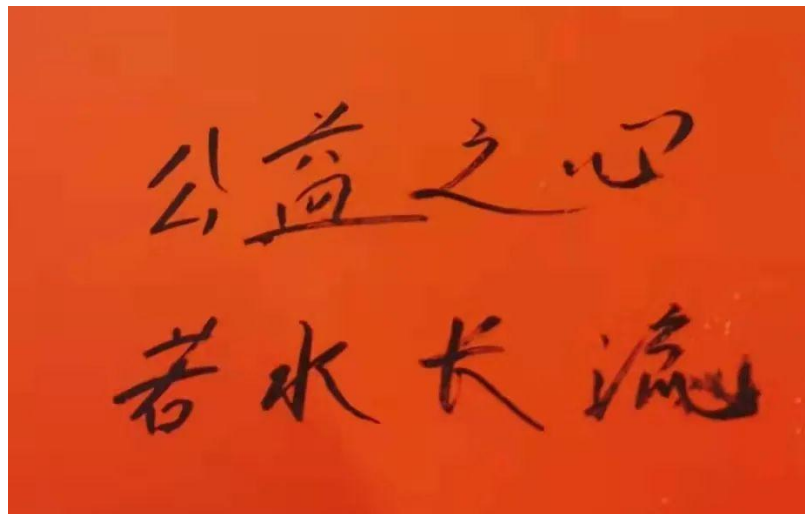 公益之心
若水长流